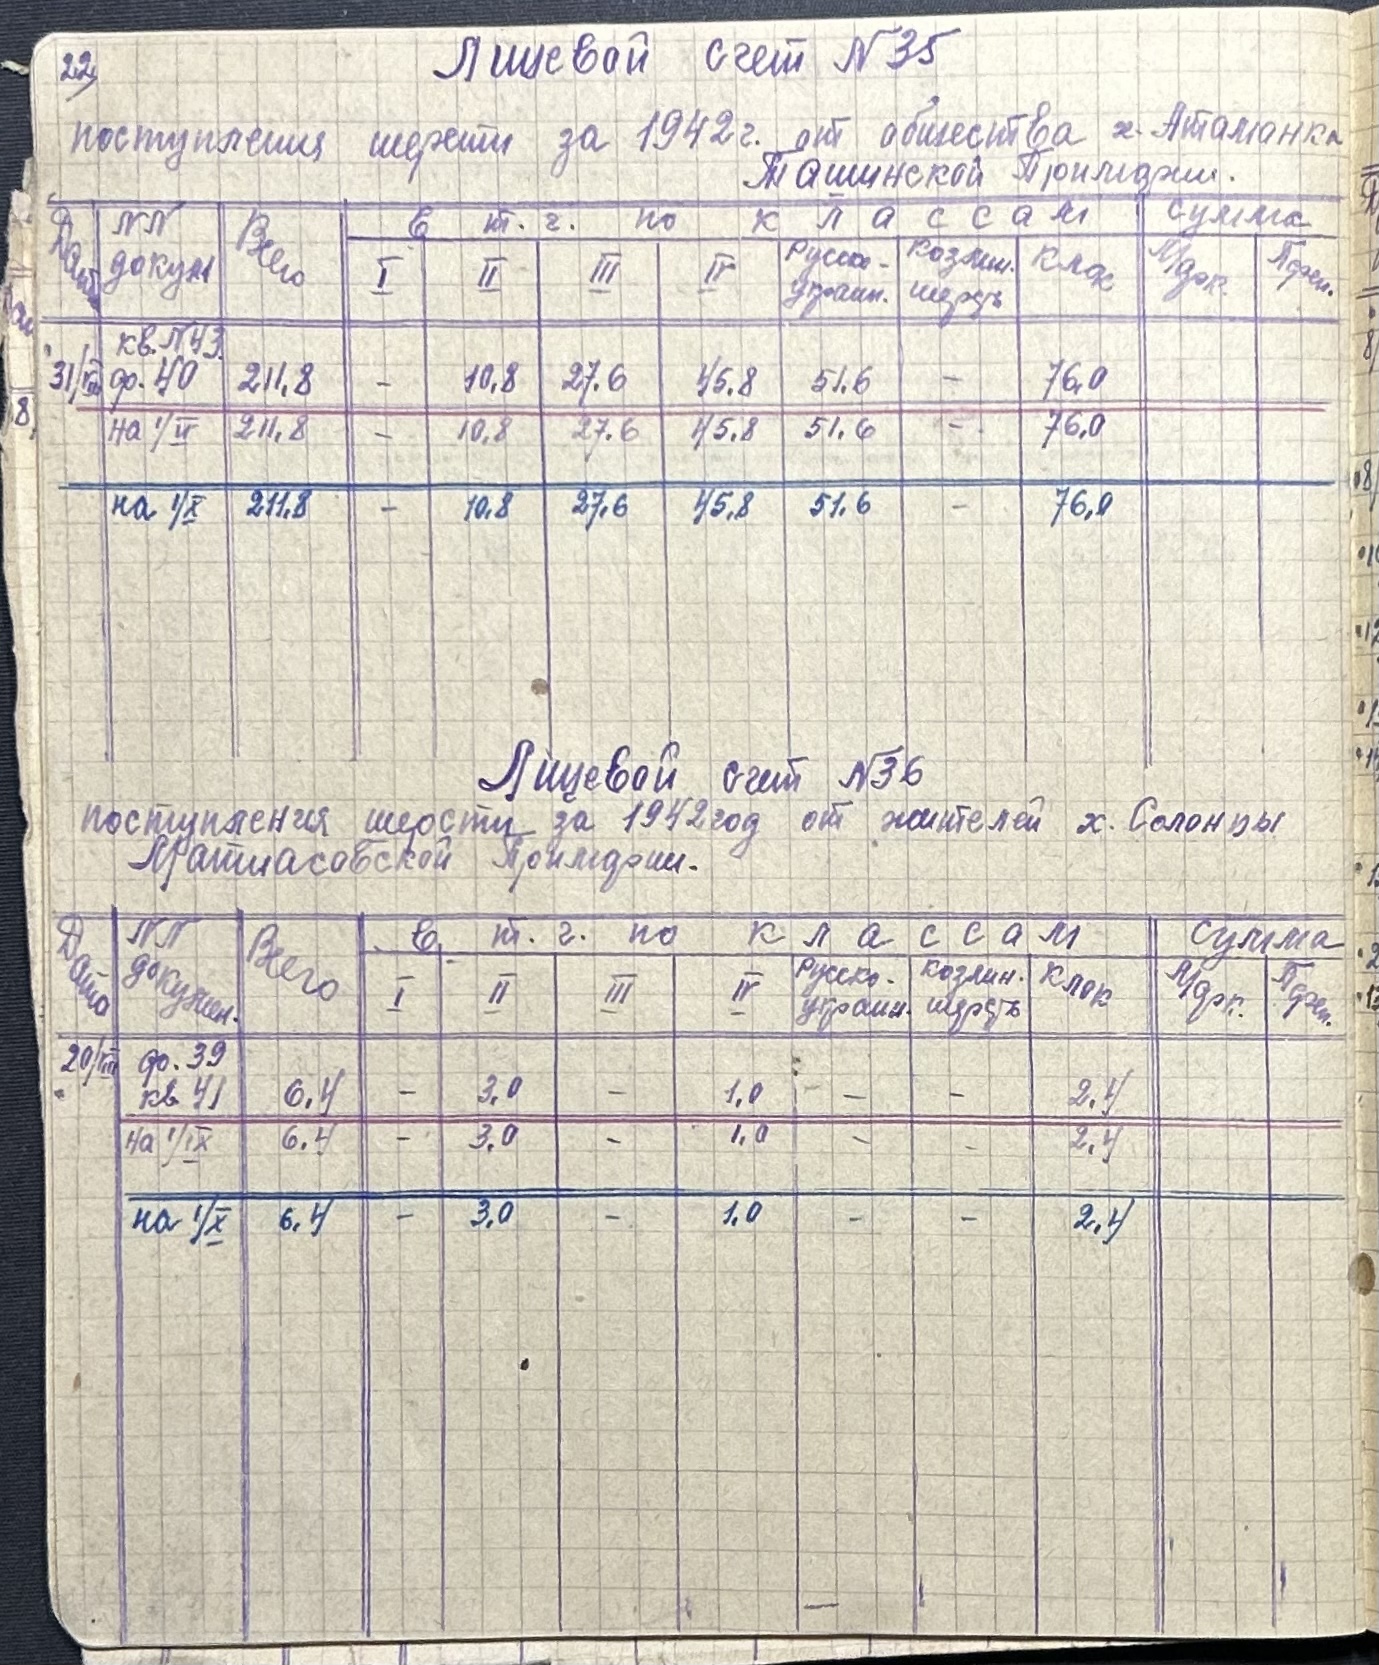 22
Лицевой счет N35
поступления шерсти за 1942 г. от общества х. Атаманка
Ташинской
Дата NN докум Всего В т. г. по классам Сумма
I II III IV Русско-украин. Козлин. шерсть Клок Марк. Пфен.
кв. N43
31/VIII ф. 40 211.8 - 10.8 27.6 45.8 51.6 - 76.0
на 1/IX 211.8 - 10.8 27.6 45.8 51.6 - 76.0
на 1/X 211.8 - 10.8 27.6 45.8 51.6 - 76.0
Лицевой счет N36
поступления шерсти за 1942 год от жителей х. Солонцы
Дата NN докумен. Всего В т. г. по классам Сумма
I II III IV Русско-украин. Козлин. шерсть Клок Марк. Пфен.
20/VIII ф. 39
кв 41 6.4 - 3.0 - 1.0 - - 2.4
на 1/IX 6.4 - 3.0 - 1.0 - - 2.4
на 1/X 6.4 - 3.0 - 1.0 - - 2.4